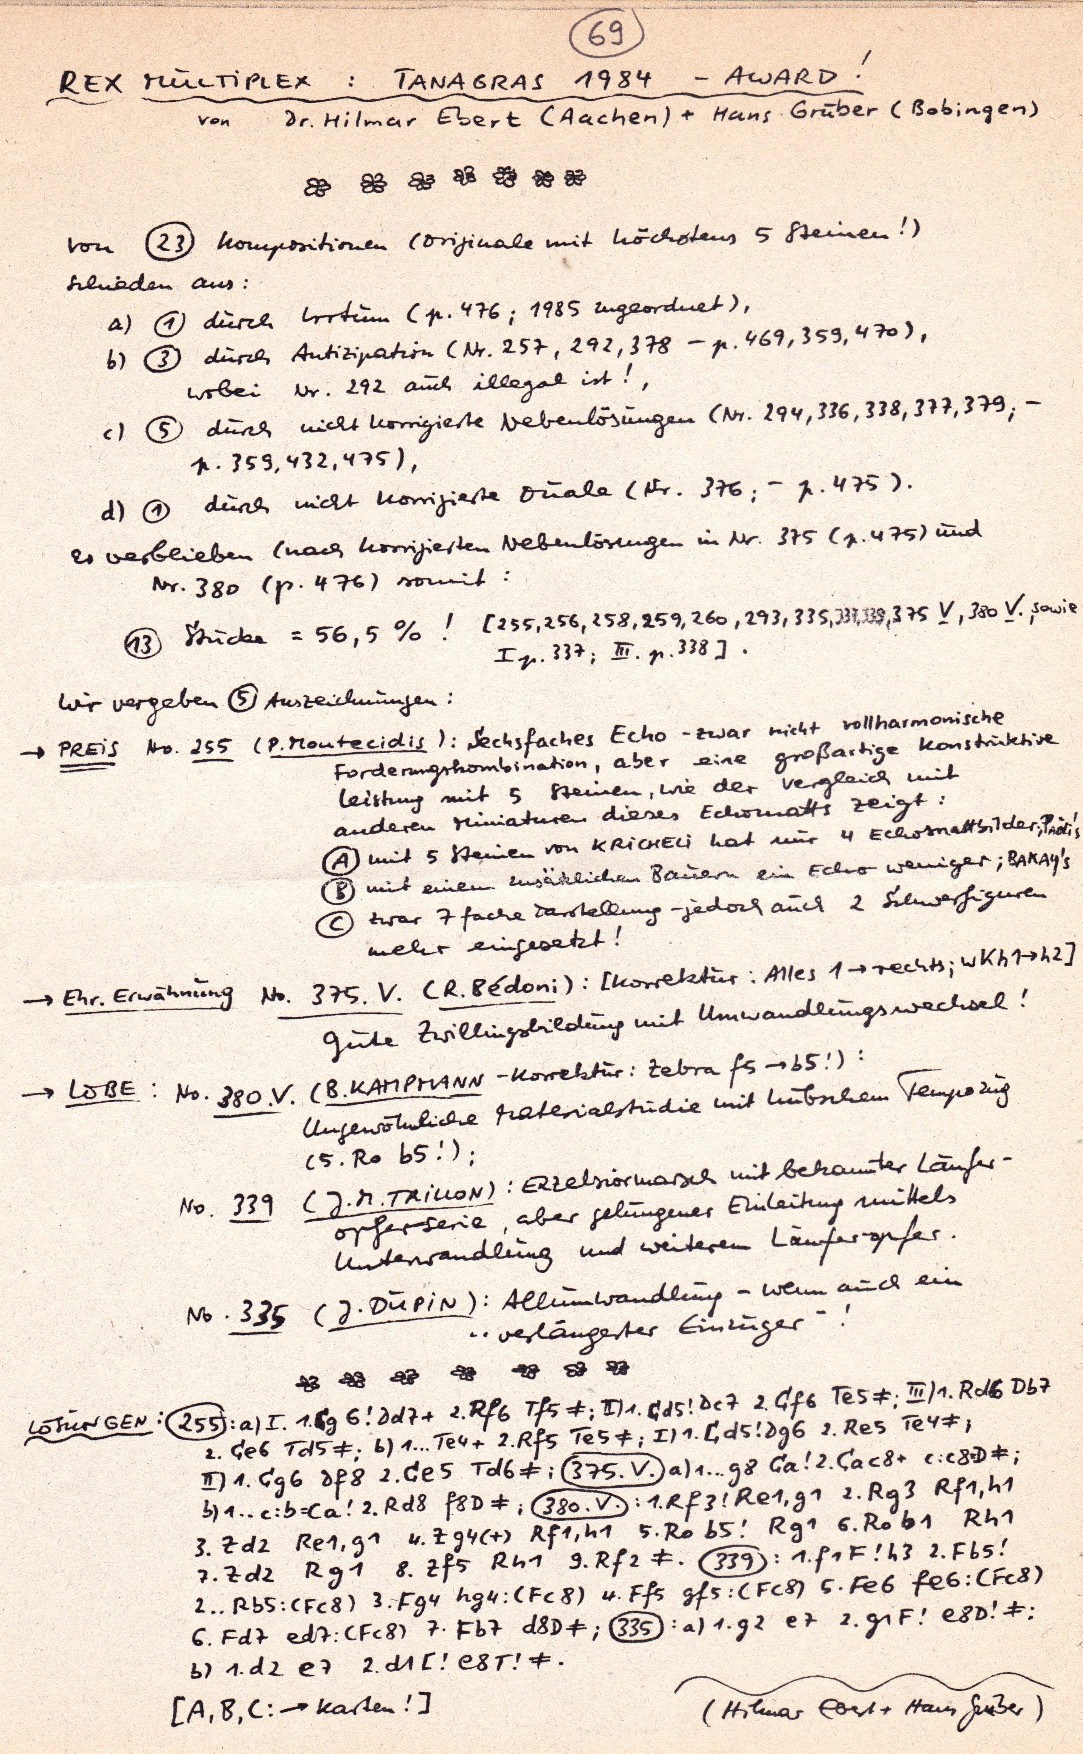 69
REX MULTIPLEX : TANAGRAS 1984 - AWARD !
von Dr. Hilmar Ebert (Aachen) + Hans Gruber (Bobingen)
von 23 Kompositionen (Originale mit höchstens 5 Steinen!)
schieden aus:
a) 1 durch Irrtum (p. 476; 1985 zugeordnet),
b) 3 durch Antizipation (Nr. 257, 292, 378 - p. 469, 359, 470),
wobei Nr. 292 auch illegal ist!,
c) 5 durch nicht korrigierte Nebenlösungen (Nr. 294, 336, 338, 377, 379; -
p. 359, 432, 475),
d) 1 durch nicht korrigierte Duale (Nr. 376; - p. 475).
Es verblieben (nach korrigierten Nebenlösungen in Nr. 375 (p. 475) und
Nr. 380 (p. 476) somit:
13 Stücke = 56,5 % ! [255, 256, 258, 259, 260, 293, 335, 337, 339, 375 V, 380 V. , sowie
I p. 337; III. p. 338] .
Wir vergeben 5 Auszeichnungen:
→ PREIS No. 255 (P. Montecidis): Sechsfaches Echo - zwar nicht vollharmonische
Forderungskombination, aber eine großartige konstruktive
Leistung mit 5 Steinen, wie der Vergleich mit
anderen Miniaturen dieses Echomatts zeigt:
A mit 5 Steinen von KRICHELI hat nur 4 Echomattbilder;
B mit einem zusätzlichen Bauern ein Echo weniger; BAKAY's
C zwar 7 fache Darstellung - jedoch auch 2 Schwerfiguren
mehr eingesetzt!
→ Ehr. Erwähnung No. 375. V. (R. Bédoni): [Korrektur: Alles 1 → rechts; wKh1→h2]
Gute Zwillingsbildung mit Umwandlungswechsel!
→ LOBE : No. 380. V. (B. KAMPMANN - Korrektur: Zebra f5 → b5!) :
Ungewöhnliche Materialstudie mit hübschem Tempozug
(5. Ro b5!);
No. 339 (J. M. TRILLON): Exzelsiormarsch mit bekannter Läufer-
opferserie, aber gelungener Einleitung mittels
Unterwandlung und weiterem Läuferopfer.
No. 335 (J. DUPIN): Allumwandlung - wenn auch ein
"verlängerter Einzüger" !
LÖSUNGEN: 255 : a) I. 1. Gg6! Dd7+ 2. Rf6 Tf5 ≠; II) 1. Gd5! Dc7 2. Gf6 Te5 ≠; III) 1. Rd6 Db7
2. Ge6 Td5 ≠; b) 1... Te4+ 2. Rf5 Te5 ≠; I) 1. Gd5! Dg6 2. Re5 Te4 ≠;
II) 1. Gg6 Df8 2. Ge5 Td6 ≠; 375. V. a) 1... g8 Ca! 2. Cac8+ c:c8D ≠;
b) 1... c:b=Ca! 2. Rd8 f8D ≠; 380. V. : 1. Rf3! Re1, g1 2. Rg3 Rf1, h1
3. Zd2 Re1, g1 4. Zg4(+) Rf1, h1 5. Ro b5! Rg1 6. Ro b1 Rh1
7. Zd2 Rg1 8. Zf5 Rh1 9. Rf2 ≠. 339 : 1. f1F! h3 2. Fb5!
2.. Rb5:(Fc8) 3. Fg4 hg4:(Fc8) 4. Ff5 gf5:(Fc8) 5. Fe6 fe6:(Fc8)
6. Fd7 ed7:(Fc8) 7. Fb7 d8D ≠; 335 : a) 1. g2 e7 2. g1F! e8D! ≠;
b) 1. d2 e7 2. d1C! e8T! ≠.
[A, B, C: → Karten!]
(Hilmar Ebert + Hans Gruber)